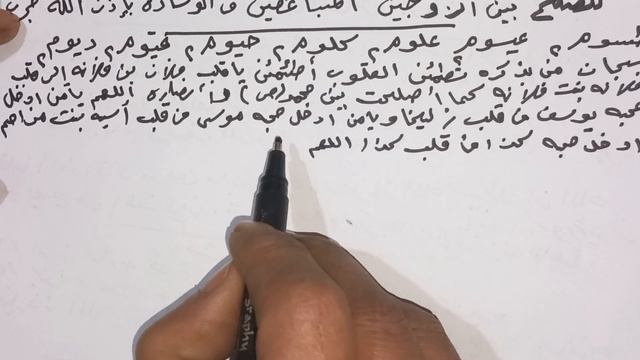 للصلح بين الزوجين المتباغضين في الوسادة بإذن الله مجرب
عيسوم علوم كلوم حيوم قيوم ديوم
سبحان من بذكره تطمئن القلوب أطمئن يا قلب فلان بن فلانه الى قلب
فلانه بنت فلانه كما أصلحت بين محمد (ص) و أنصاره اللهم يا من ادخل
محبة يوسف في قلب زليخا ويا من ادخل محبه موسى في قلب آسيه بنت مزاحم
ادخل محبه كذا في قلب كذا اللهم